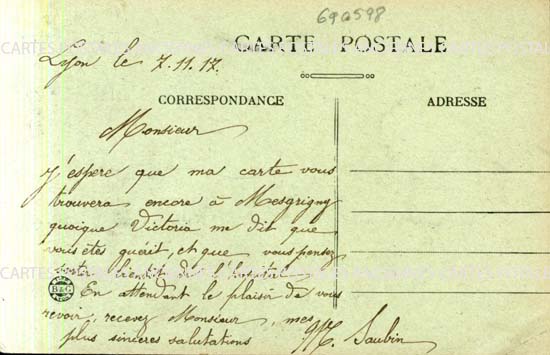 690598
CARTE POSTALE
Lyon le 7.11.17.
CORRESPONDANCE
ADRESSE
Monsieur
J'espere que ma carte vous
trouvera encore à Mesgrigny
quoique Victoria me dit que
vous êtes guérit, et que vous pensez
sortir bientôt de l'hôpital.
B & G
En attendant le plaisir de vous
revoir, recevez Monsieur, mes
plus sincères salutations
M. Saubin